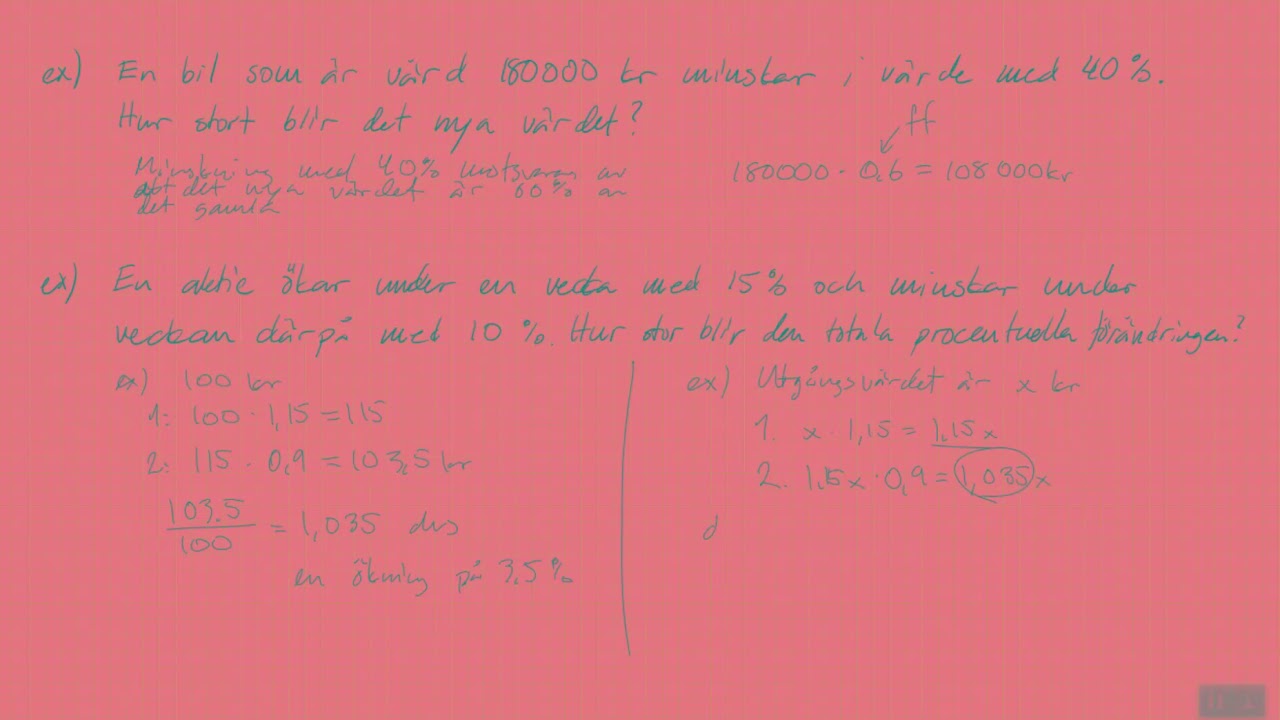 ex) En bil som är värd 180000 kr minskar i värde med 40%.
Hur stort blir det nya värdet?
ff
Minskning med 40% motsvarar av
att det nya värdet är 60% av
det gamla
180000 · 0,6 = 108 000 kr
ex) En aktie ökar under en vecka med 15% och minskar under
veckan därpå med 10 %. Hur stor blir den totala procentuella förändringen?
ex) 100 kr
1: 100 · 1,15 = 115
2: 115 · 0,9 = 103,5 kr
103.5
100
= 1,035 dvs
en ökning på 3,5%
ex) Utgångsvärdet är x kr
1. x · 1,15 = 1,15x
2. 1,15x · 0,9 = 1,035x
d